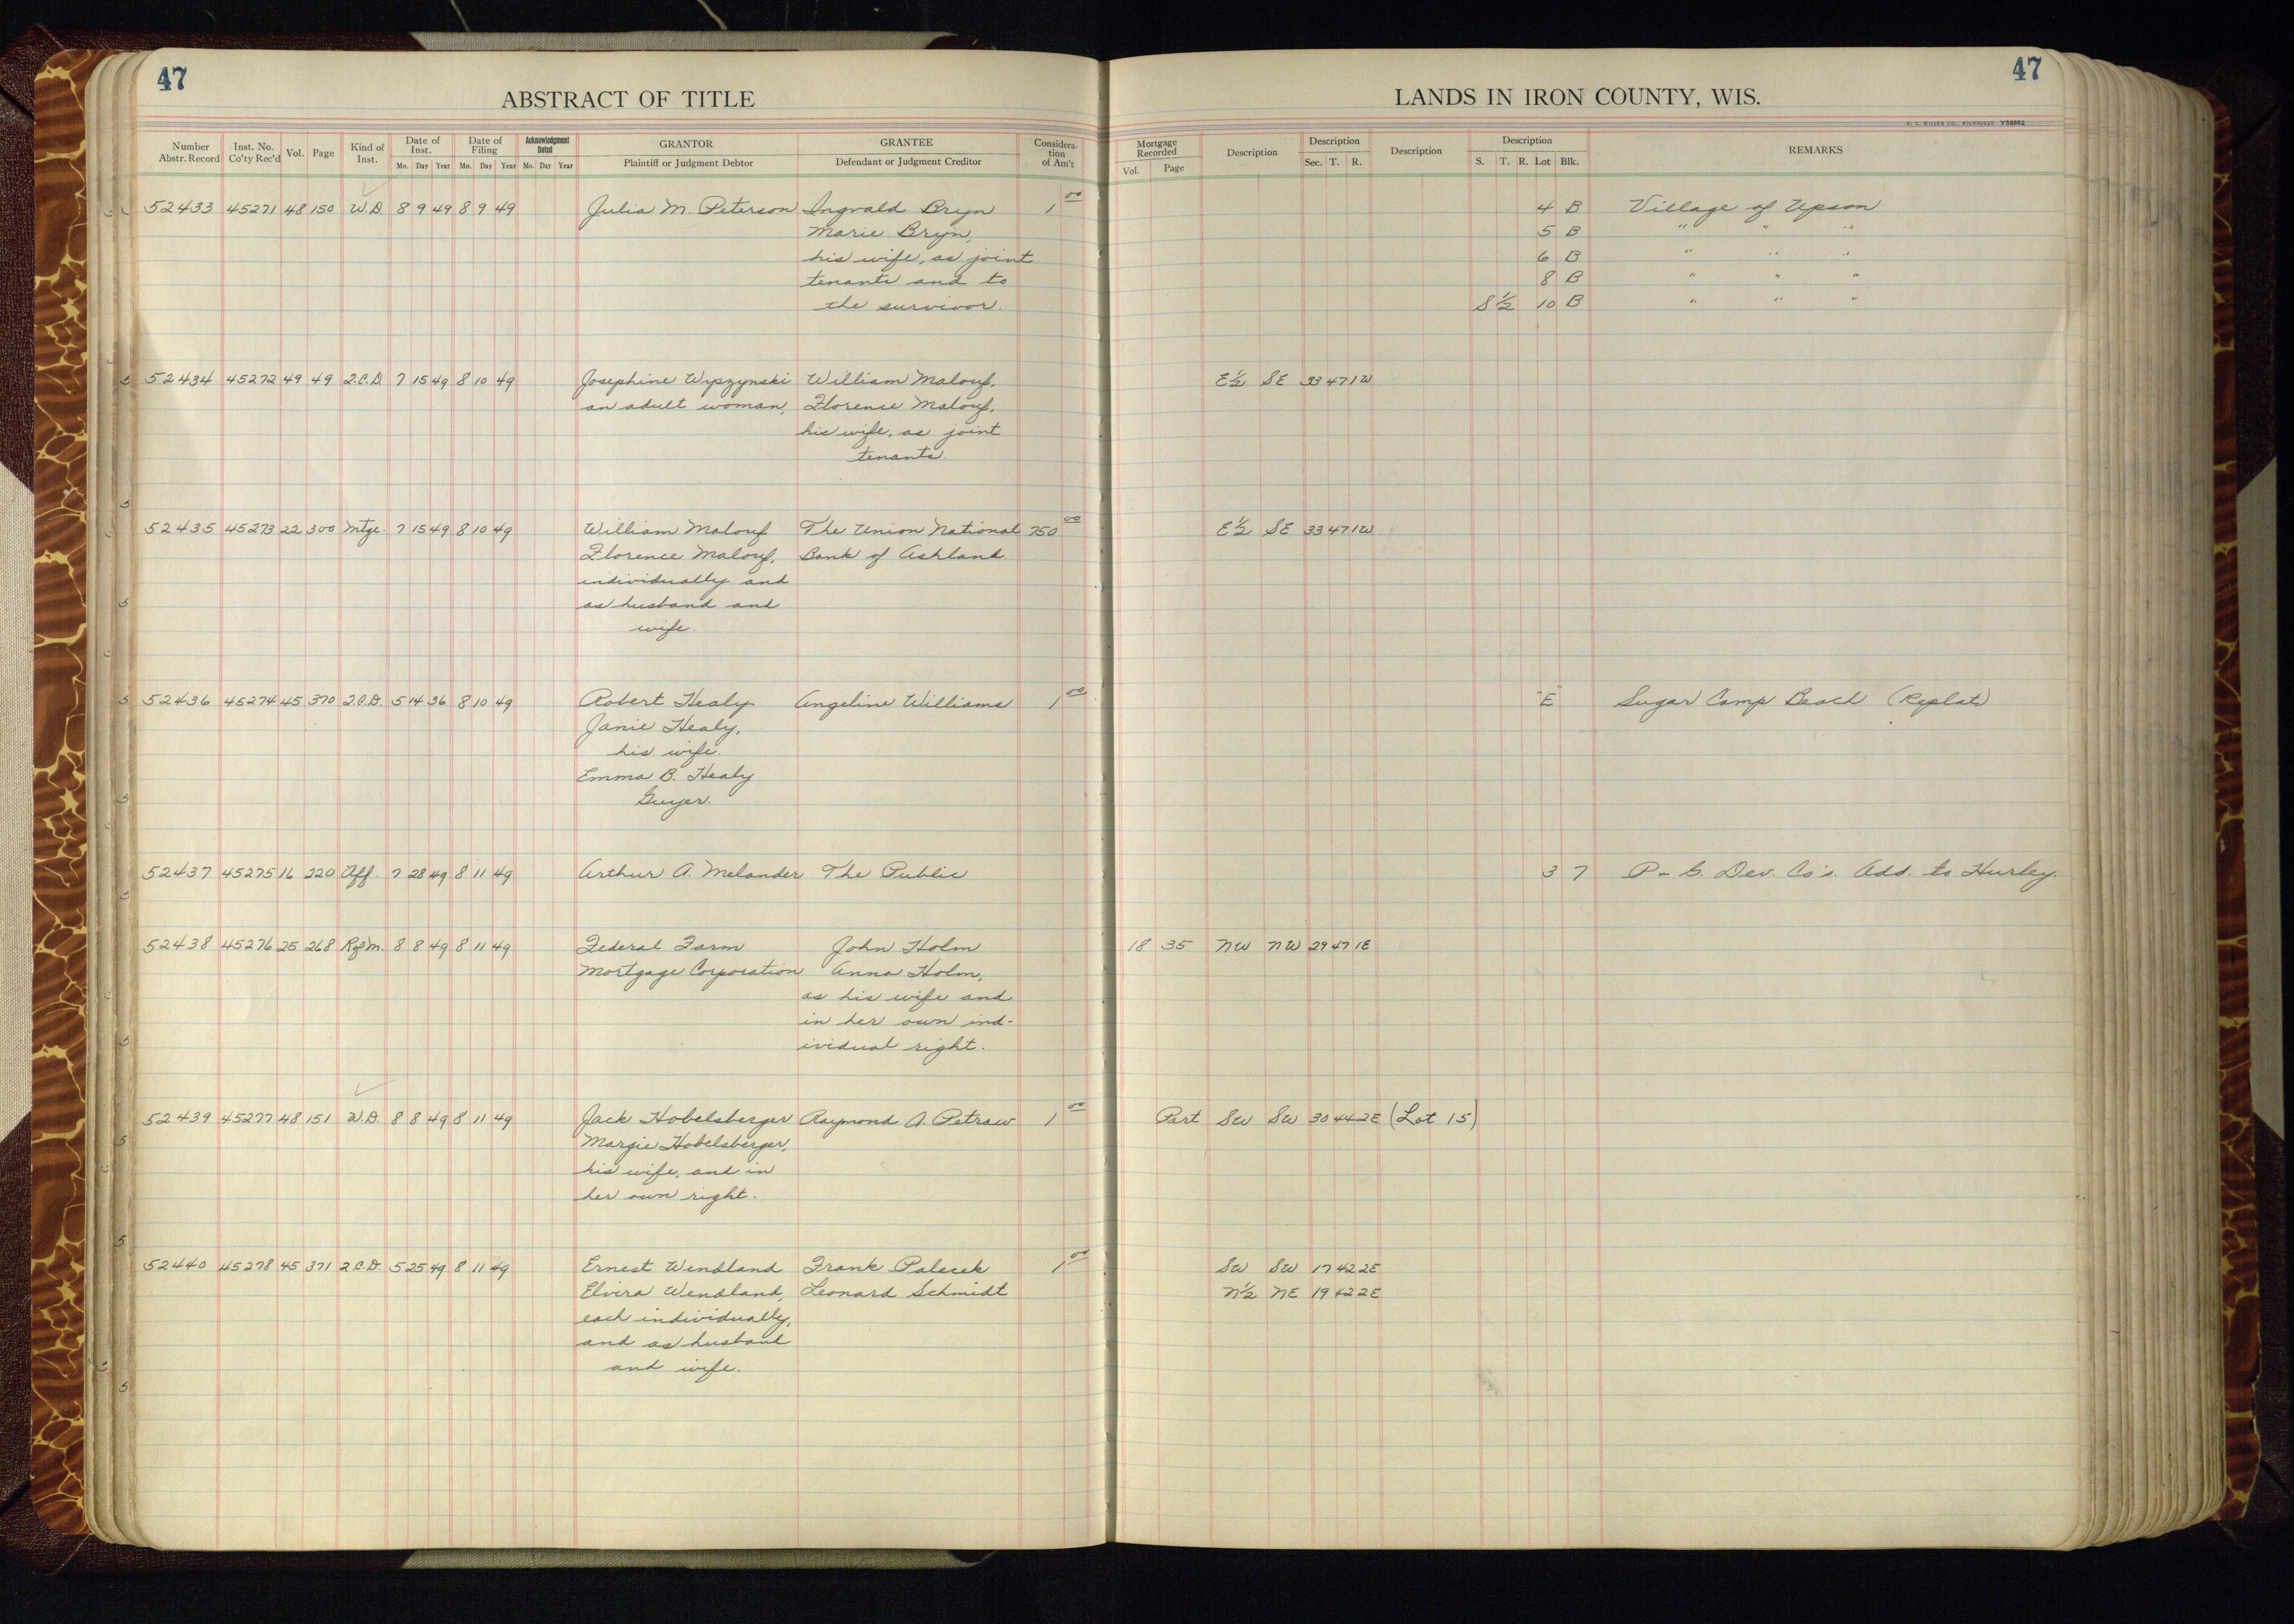 47
47
ABSTRACT OF TITLE
LANDS IN IRON COUNTY, WIS.
H. C. MILLER CO., MILWAUKEE Y56662
Number Abstr. Record Inst. No. Co'ty Rec'd Vol. Page Kind of Inst. Date of Inst. Mo. Day Year Date of Filing Mo. Day Year Acknowledgment Dated Mo. Day Year GRANTOR Plaintiff or Judgment Debtor GRANTEE Defendant or Judgment Creditor Considera-tion of Am't
Mortgage Recorded Vol. Page Description Description Sec. T. R. Description Description S. T. R. Lot Blk. REMARKS
52433 45271 48 150 W.D. 8 9 49 8 9 49 Julia M. Peterson Ingvald Bryn 1 00 4 B Village of Upson
Marie Bryn, 5 B " " "
his wife, as joint 6 B " " "
tenants and to 8 B " " "
the survivor. S 1/2 10 B " " "
52434 45272 49 49 Q.C.D. 7 15 49 8 10 49 Josephine Wyszynski William Malouf, E 1/2 SE 33 47 1W
an adult woman, Florence Malouf,
his wife, as joint
tenants.
52435 45273 22 300 Mtge. 7 15 49 8 10 49 William Malouf The Union National 750 00 E 1/2 SE 33 47 1W
Florence Malouf, Bank of Ashland.
individually and
as husband and
wife.
52436 45274 45 370 Q.C.D. 5 14 36 8 10 49 Robert Healy Angeline Williams 1 00 "E" Sugar Camp Beach (Replat)
Janie Healy,
his wife.
Emma B. Healy
Guyer.
52437 45275 16 220 Aff. 7 28 49 8 11 49 Arthur A. Melander The Public 3 7 P- S. Dev. Co's. Add. to Hurley.
52438 45276 25 268 RofM. 8 8 49 8 11 49 Federal Farm John Holm 18 35 NW NW 29 47 1E
Mortgage Corporation Anna Holm,
as his wife and
in her own ind-
ividual right.
52439 45277 48 151 W.D. 8 8 49 8 11 49 Jack Hobelsberger Raymond A. Petraw 1 00 Part SW SW 30 44 2E (Lot 15)
Margie Hobelsberger,
his wife, and in
her own right.
52440 45278 45 371 Q.C.D. 5 25 49 8 11 49 Ernest Wendland Frank Palecek 1 00 SW SW 17 42 2E
Elvira Wendland, Leonard Schmidt N 1/2 NE 19 42 2E
each individually,
and as husband
and wife.